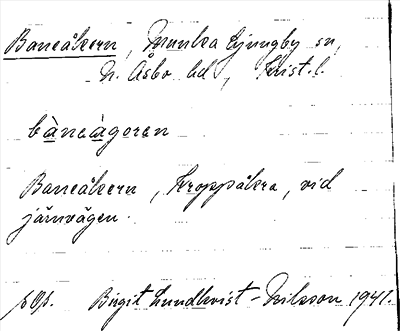 Baneåkern, Munka Ljungby sn,
N. Åsbo hd, Krist. l.
bànèàgoren
Baneåkern, Kroppåkra, vid
järnvägen.
Birgit Lundkvist-Nilsson 1941.